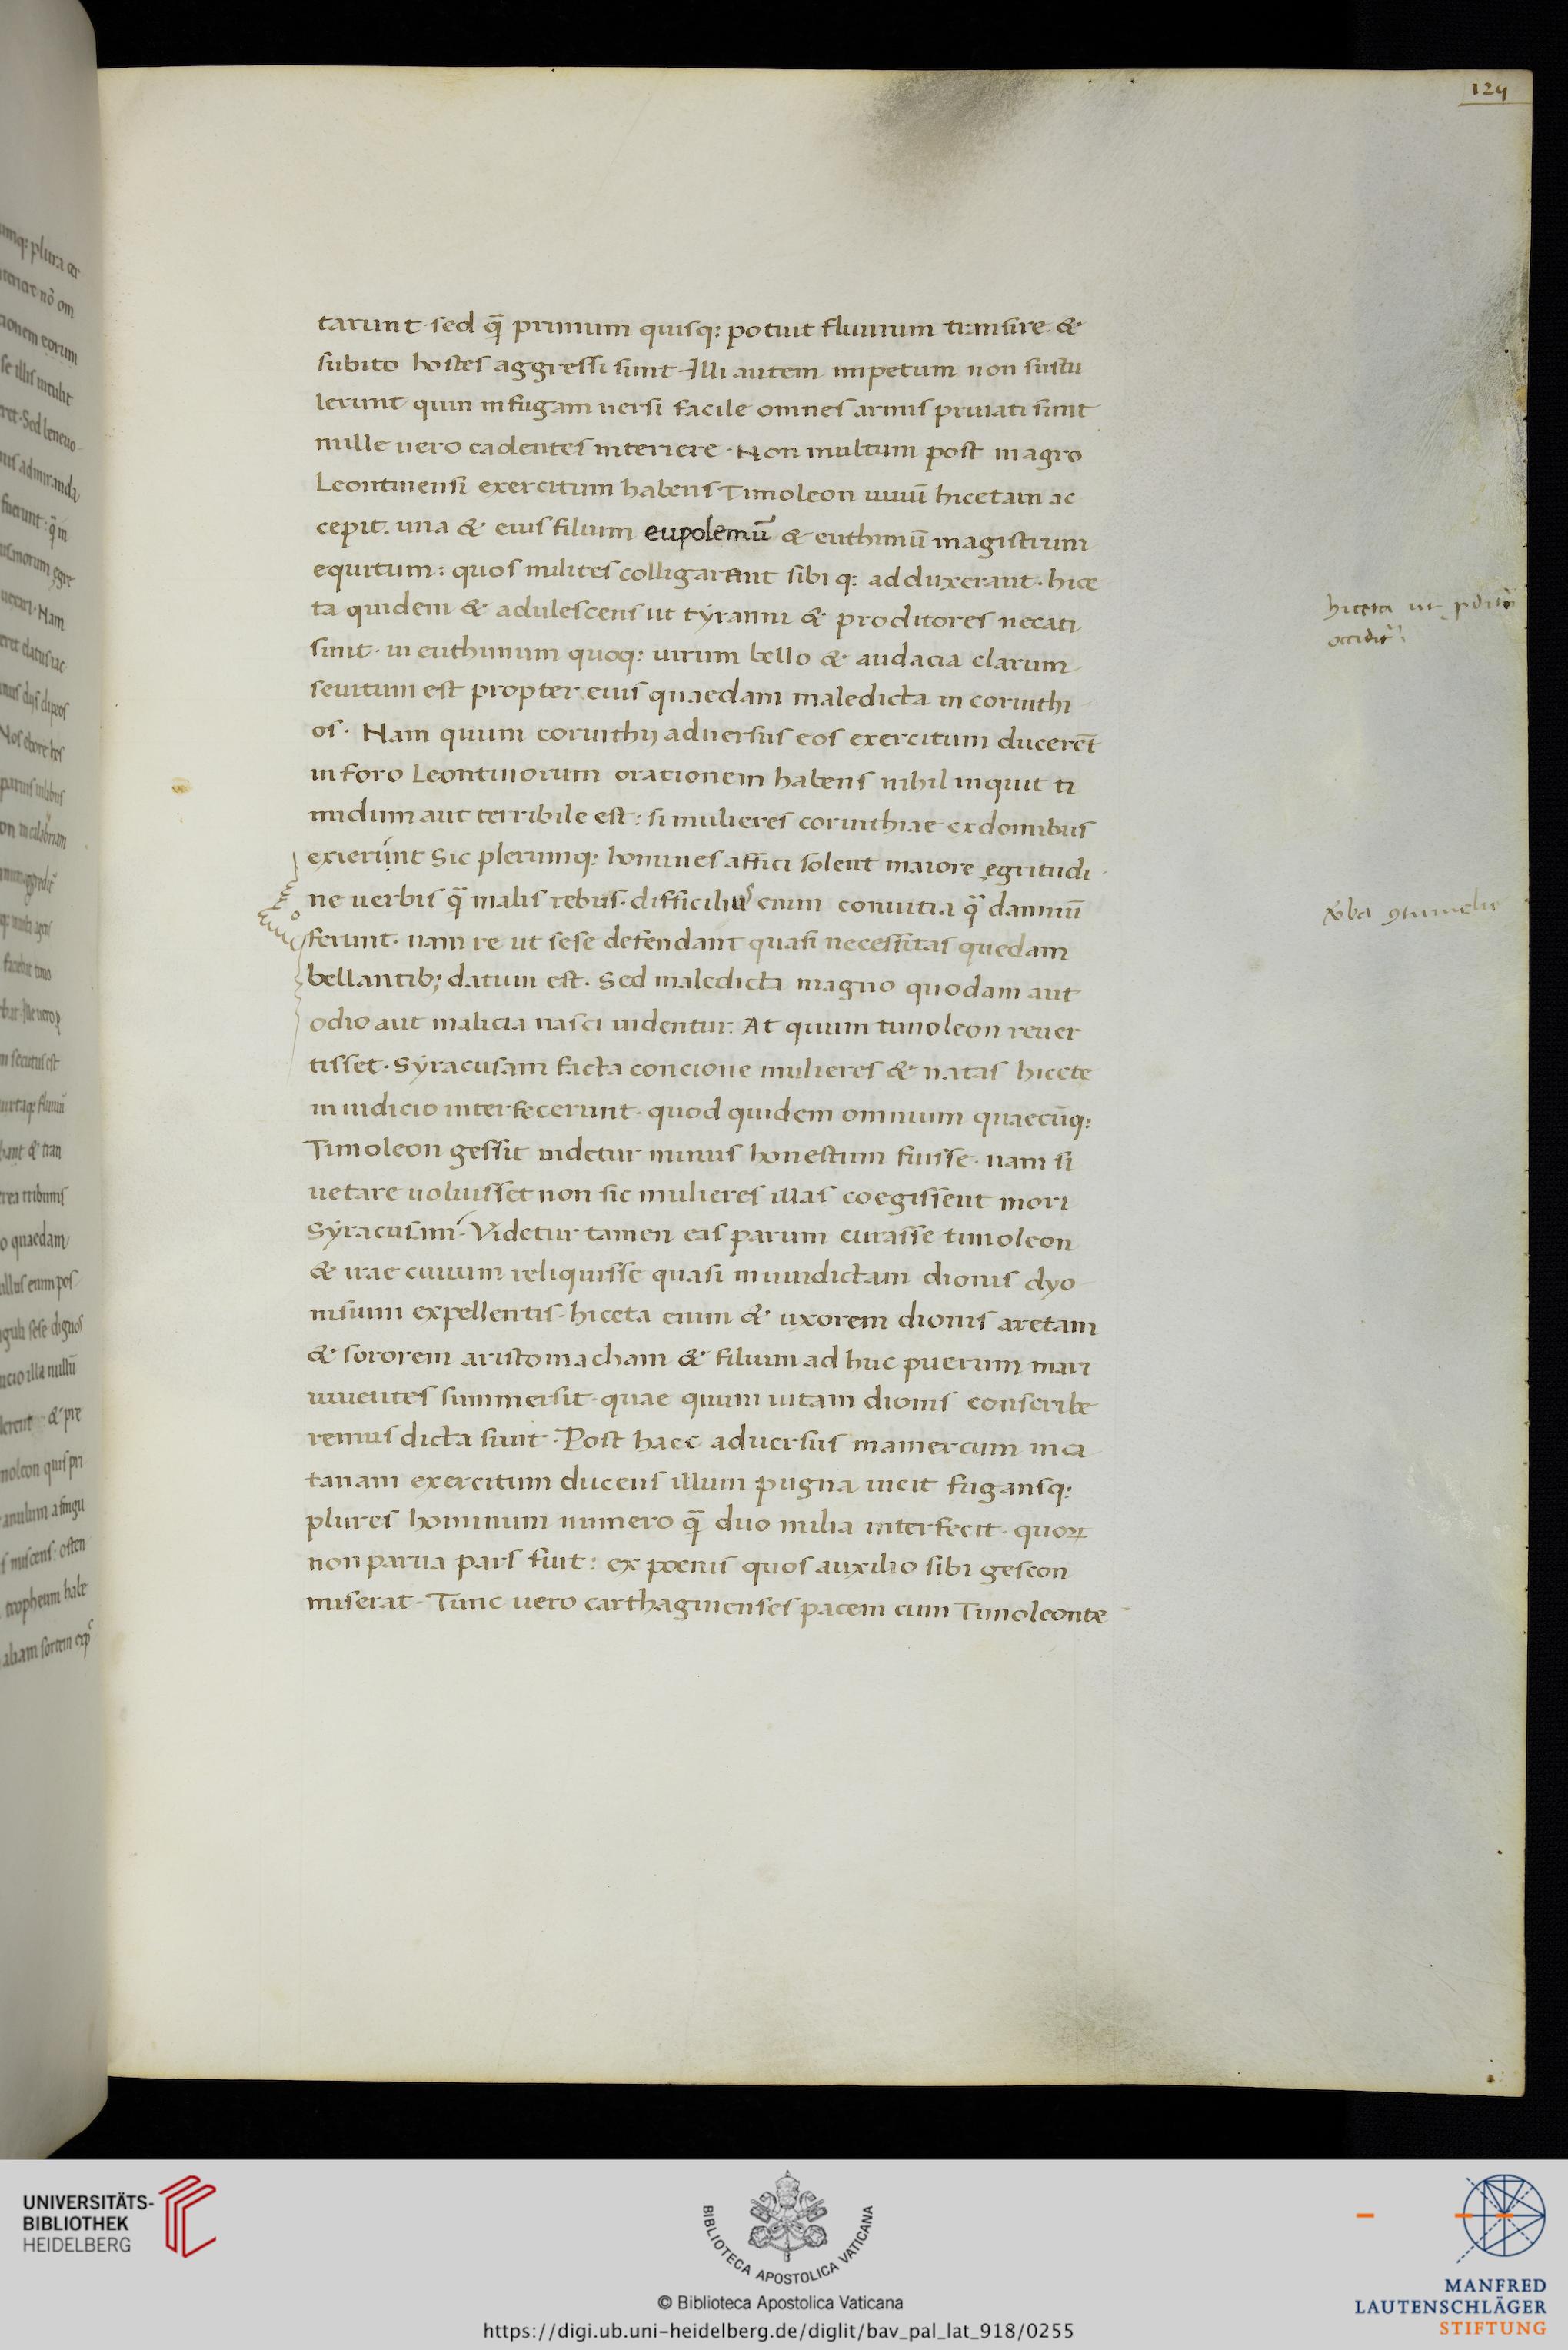 129
tarunt · sed q̃ primum quisq: potuit fluuium transire · &
subito hostes aggressi sunt · Illi autem impetum non sustu
lerunt quin in fugam uersi facile omnes armis priuati sunt
mille uero cadentes interiere · Non multum post in agro
Leontinensi exercitum habens Timoleon uiuū hicetam ac
cepit · una & eius filium eupolemū & euthimū magistrum
equitum : quos milites colligarant sibi q: adduxerant · hice
ta quidem & adulescens ut tyranni & proditores necati
sunt · in euthimum quoq: uirum bello & audacia clarum
seuitum est propter eius quaedam maledicta in corinthi
os · Nam quum corinthij aduersus eos exercitum ducerēt
in foro Leontinorum orationem habens nihil inquit ti
midum aut terribile est : si mulieres corinthiae ex domibus
exierunt Sic plerumq: homines affici solent maiore egritudi
ne uerbis q̃ malis rebus · difficilius enim conuitia q̃ damnū
ferunt · nam re ut sese defendant quasi necessitas quedam
bellantib; datum est · Sed maledicta magno quodam aut
odio aut malicia nasci uidentur · At quum timoleon reuer
tisset · Syracusam facta concione mulieres & natas hicete
in iudicio interfecerunt · quod quidem omnium quaecūq:
Timoleon gessit uidetur minus honestum fuisse · nam si
uetare uoluisset non sic mulieres illas coegissent mori
Syracusani · Videtur tamen eas parum curasse timoleon
& irae ciuium reliquisse quasi in uindictam dionis dyo
nisium expellentis · hiceta enim & uxorem dionis aretam
& sororem aristomacham & filium ad huc puerum mari
uiuentes summersit · quae quum uitam dionis conscribe
remus dicta sunt · Post haec aduersus mamercum in ca
tanam exercitum ducens illum pugna uicit fugansq:
plures hominum numero q̃ duo milia interfecit · quoꝝ
non parua pars fuit : ex poenis quos auxilio sibi gescon
miserat · Tunc uero carthaginenses pacem cum Timoleonte
hiceta ut ꝓditor
occiditr
UNIVERSITÄTS-
BIBLIOTHEK
HEIDELBERG
BIBLIOTECA APOSTOLICA VATICANA
© Biblioteca Apostolica Vaticana
https://digi.ub.uni-heidelberg.de/diglit/bav_pal_lat_918/0255
MANFRED
LAUTENSCHLÄGER
STIFTUNG